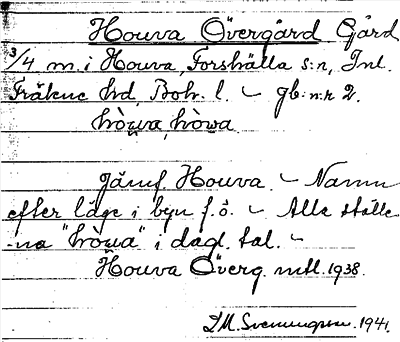 Houva Övergård Gård
3/4 m. i Houva, Forshälla s:n, Inl.
Fräkne hd, Boh. l. – gb: n:r 2.
hò̤wa, hòwa.
Jämf. Houva. – Namn
efter läge i byn f. ö. – Alla ställe
-na "hò̤wa" i dagl. tal. –
Houva Överg. mtl. 1938.
1941.